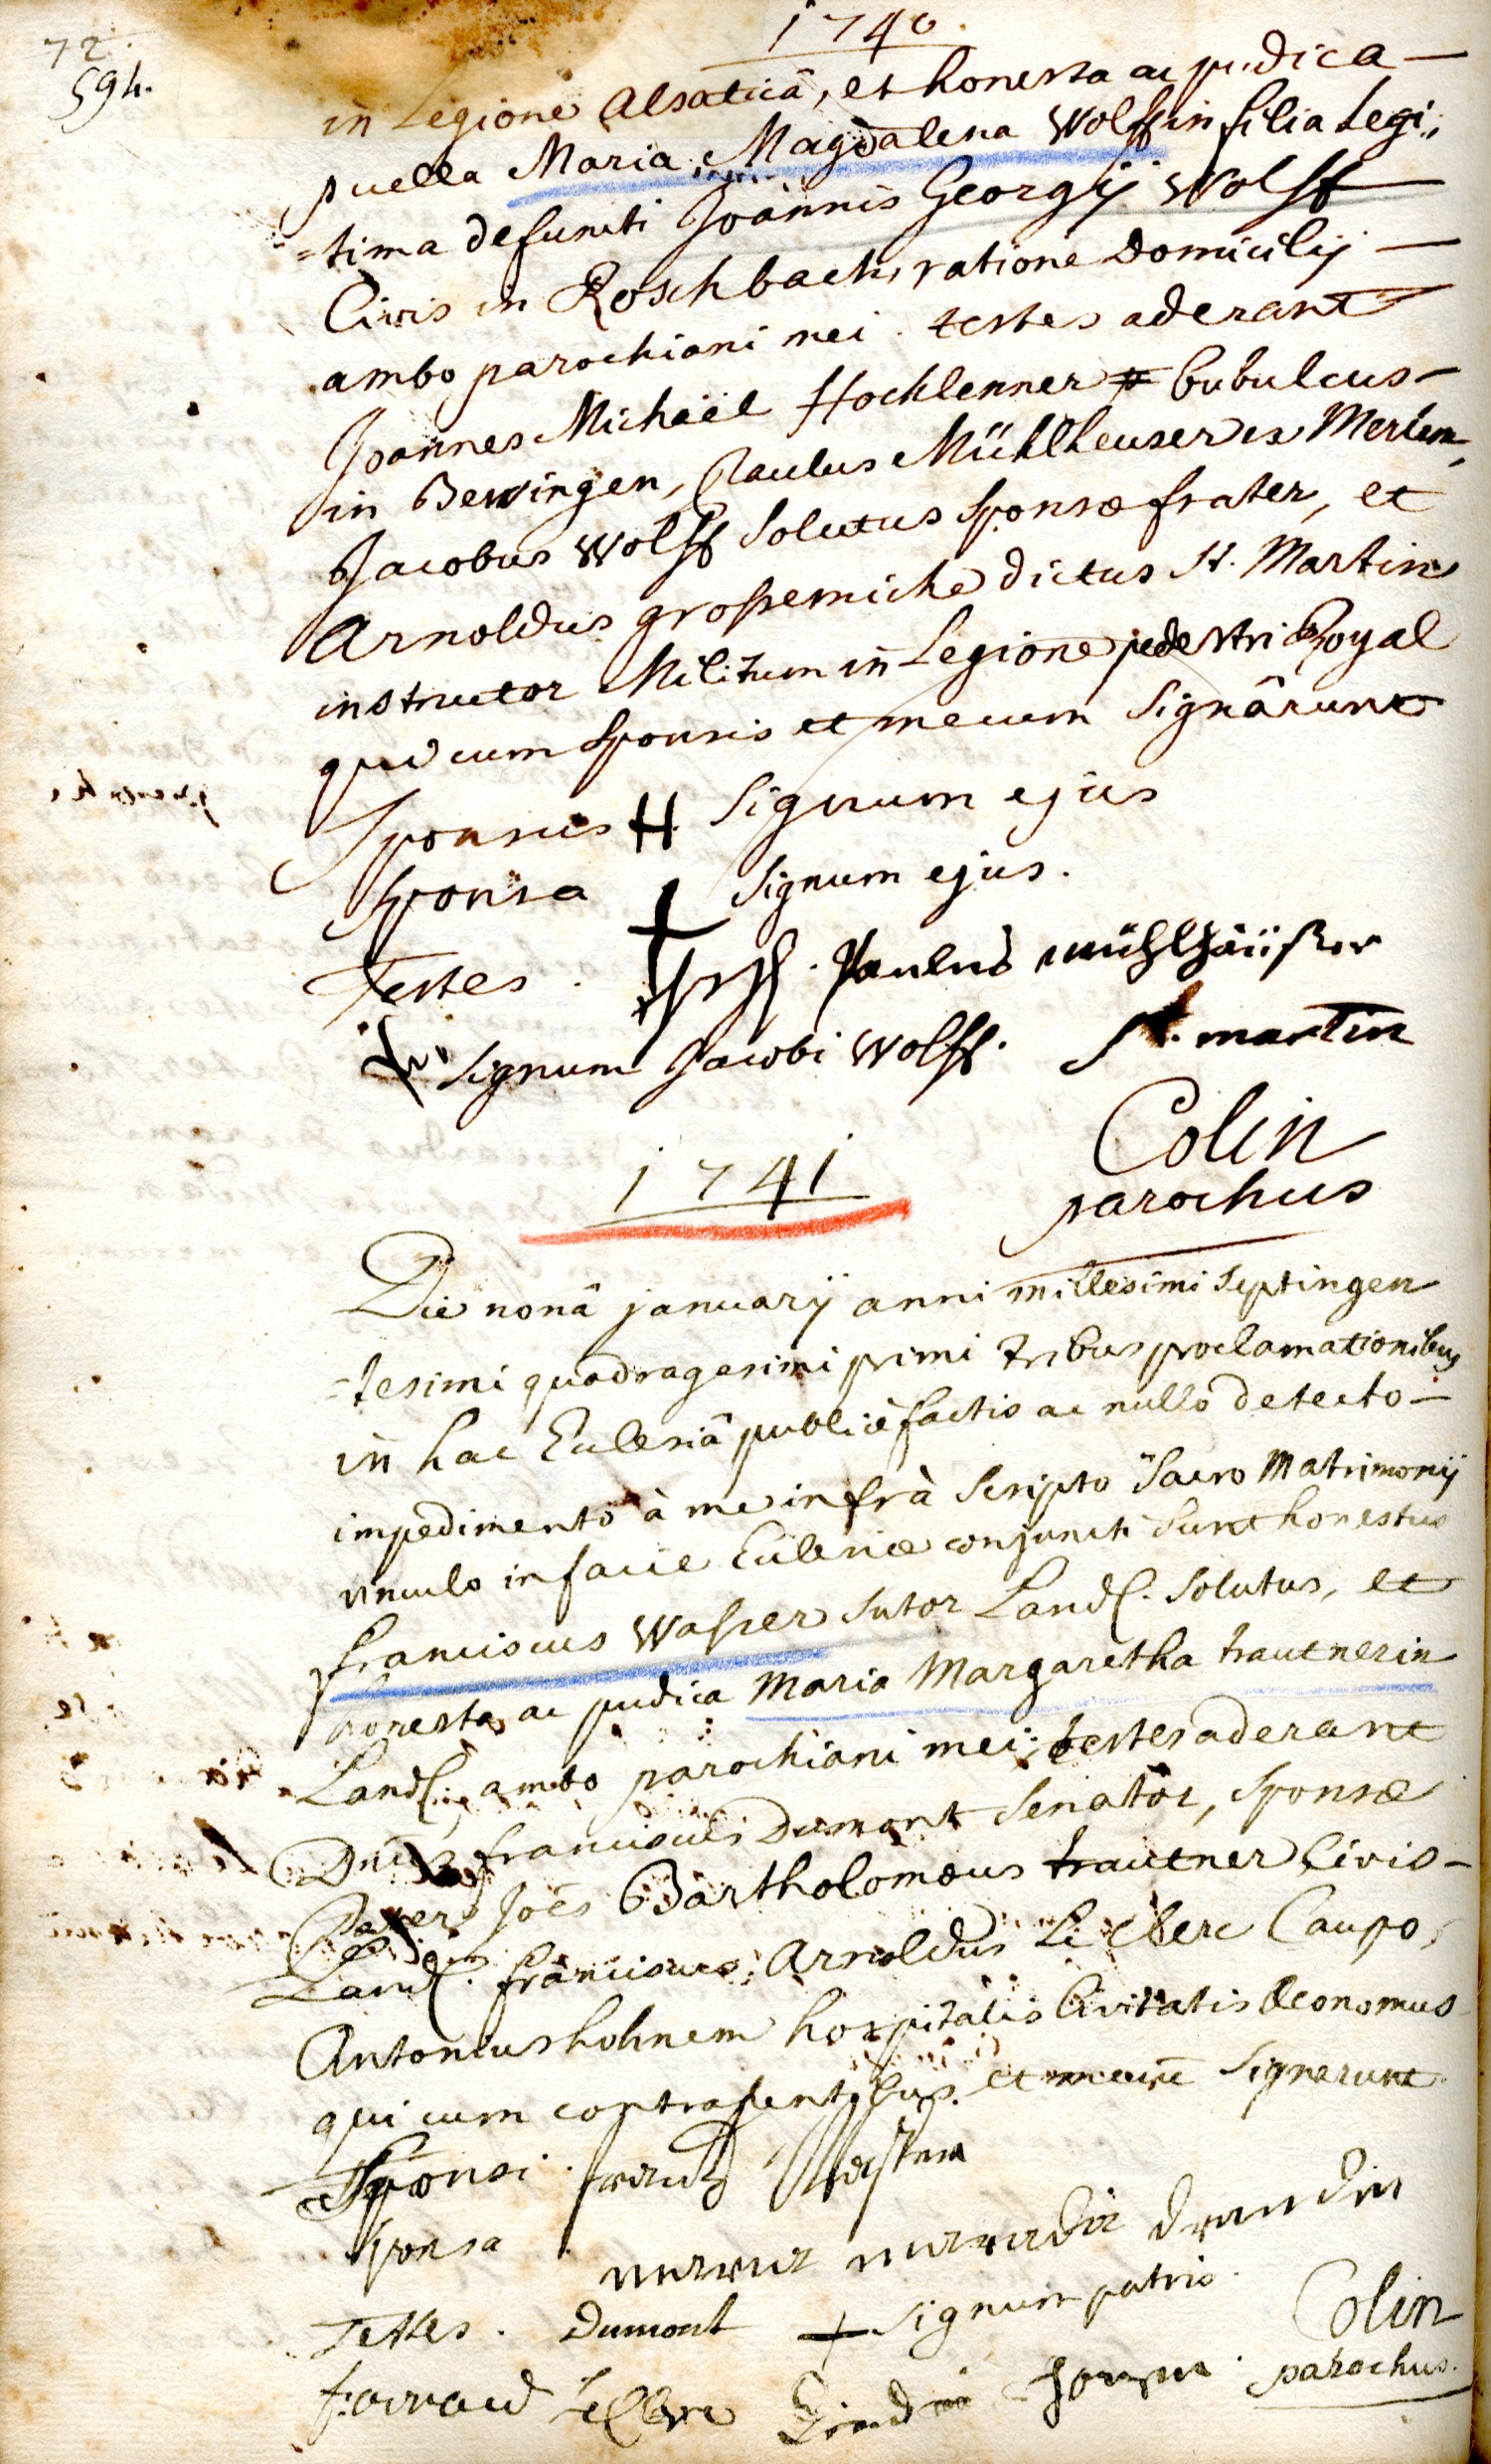 1740.
72.
594.
in Legione Alsaticâ, et honesta ac pudica —
puella Maria Magdalena Wolffin filia Legi„
=tima defuncti Joannis Georgij Wolff
Civis in Roschbach, ratione Domicilij —
ambo parochiani mei. testes aderant
Joannes Michaël Hochlenner bubulcus —
in Bewingen, Paulus Mühlheuser ex Merlem,
Jacobus Wolff Solutus Sponsæ frater, et
Arnoldus grossemiche dictus St. Martin
instructor Militum in Legione pedestri Royal
qui cum Sponsis et mecum Signârunt
Sponsus H Signum ejus
Sponsa + Signum ejus.
Testes. Paulus Mühlhäüßer
Signum Jacobi Wolff. St. martin
Colin
parochus
1741
Die nonâ januarij anni millesimi Septingen
=tesimi quadragesimi primi tribus proclamationibus
in hac Eclesiâ publicè factis ac nullo detecto —
impedimento à me infrà Scripto Sacro Matrimonij
vinculo in facie Eclesiæ conjuncti Sunt honestus
franciscus Wasser Sutor Land. Solutus, et
honesta ac pudica Maria Margaretha trautnerin
Land. ambo parochiani mei; testes aderant
Dnus franciscus Dumont Senator, Sponsæ
Pater Joës Bartholomæus trautner Civis —
Land. franciscus Arnoldus Le Clerc Caupo,
Antonius hohnem hospitalis Civitatis Œconomus
qui cum contrahentibus et mecum Signarunt.
Sponsi.
Sponsa
Testes. Dumont + Signum patris.
Colin
parochus.